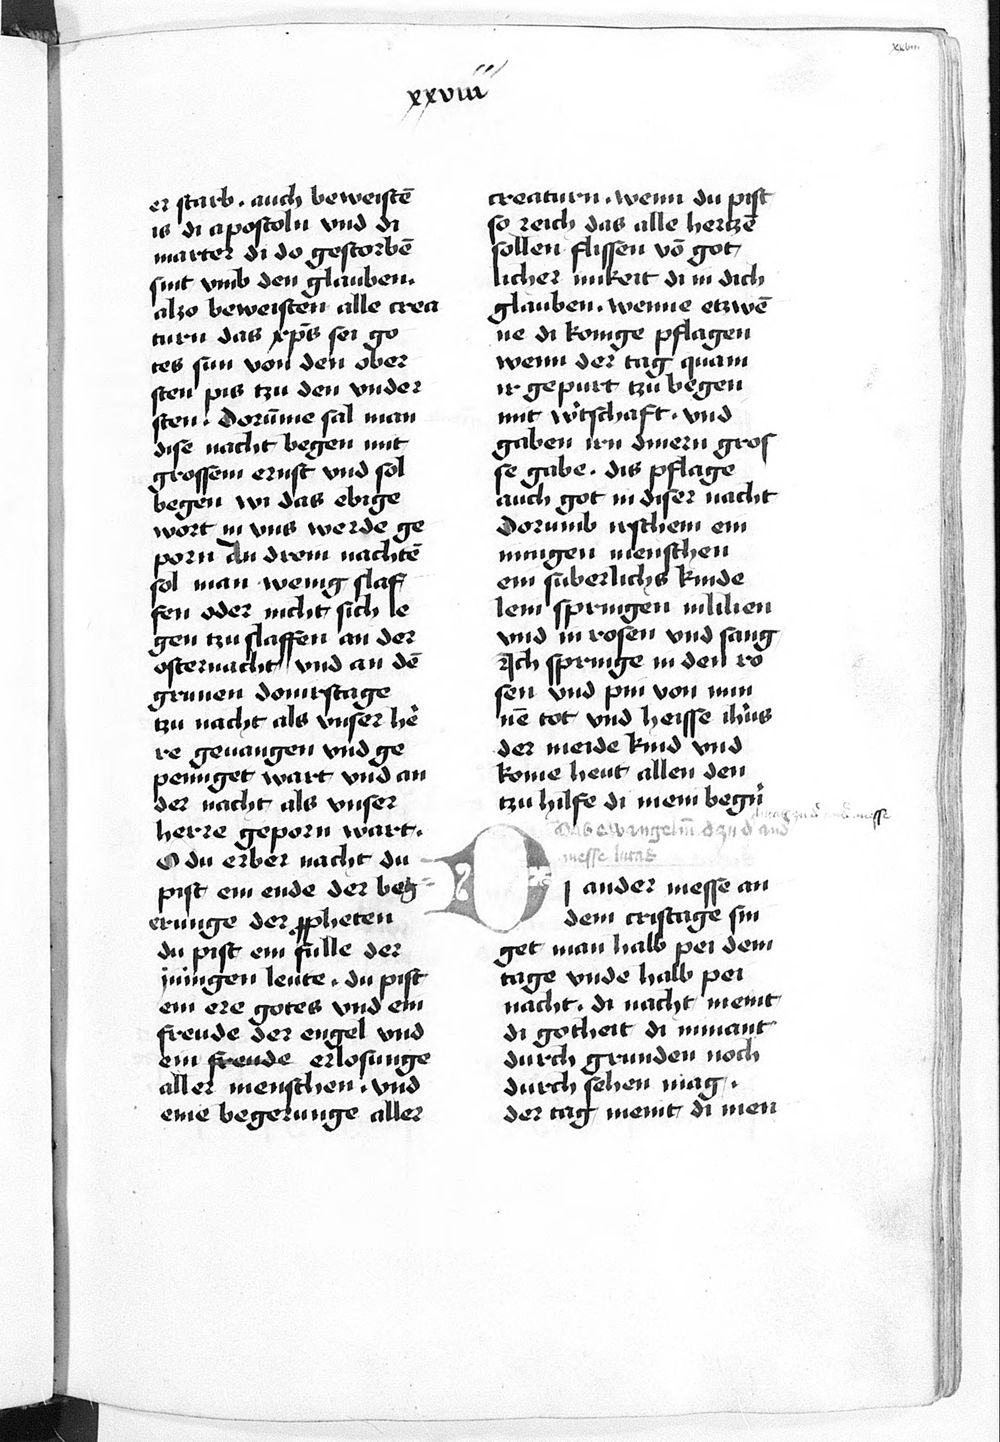 xxviii
xxviii
er starb . auch beweistē
is di apostoln vnd di
marter di do gestorbē
sint vmb den glauben .
alzo beweisten alle crea
turn das xp̄s sei go
tes sun von den ober
sten pis tzu den vnder
sten . Dorūme sal man
dise nacht begen mit
grossem ernst vnd sol
begen wi das ebige
wort in vns werde ge
porn An drein nachtē
sol man wenig slaf
fen oder nicht sich le
gen tzu slaffen an der
osternacht vnd an dē
grunen donirstage
tzu nacht als vnser he
re geuangen vnd ge
peiniget wart vnd an
der nacht als vnser
herre geporn wart .
O du erber nacht du
pist ein ende der beg
erunge der ꝓpheten
du pist ein fulle der
iungen leute . du pist
ein ere gotes vnd ein
freude der engel vnd
ein freude erlosunge
aller menschen . vnd
eine begerunge aller
creaturn . wenn du pist
so reich das alle hertzē
sollen flissen vō got
licher mikeit di in dich
glauben . wenne etzwē
ne di konige pflagen
wenn der tag quam
ir gepurt tzu begen
mit wirtschaft . vnd
gaben irn dinern gros
se gabe . dis pflage
auch got in diser nacht
Dorumb irschein eim
innigen menschen
ein suberlichs kinde
lein springen in lilien
vnd in rosen vnd sang
Ich springe in den ro
sen vnd pin von min
nē tot vnd heisse ihūs
der meide kind vnd
kome heut allen den
tzu hilfe di mein begīn
Das ewangelīū d zu d and
messe lucas
DI ander messe an
dem cristage sin
get man halb pei dem
tage vnde halb pei
nacht . di nacht meint
di gotheit di nimant
durch grunden noch
durch sehen mag .
der tag meint di men